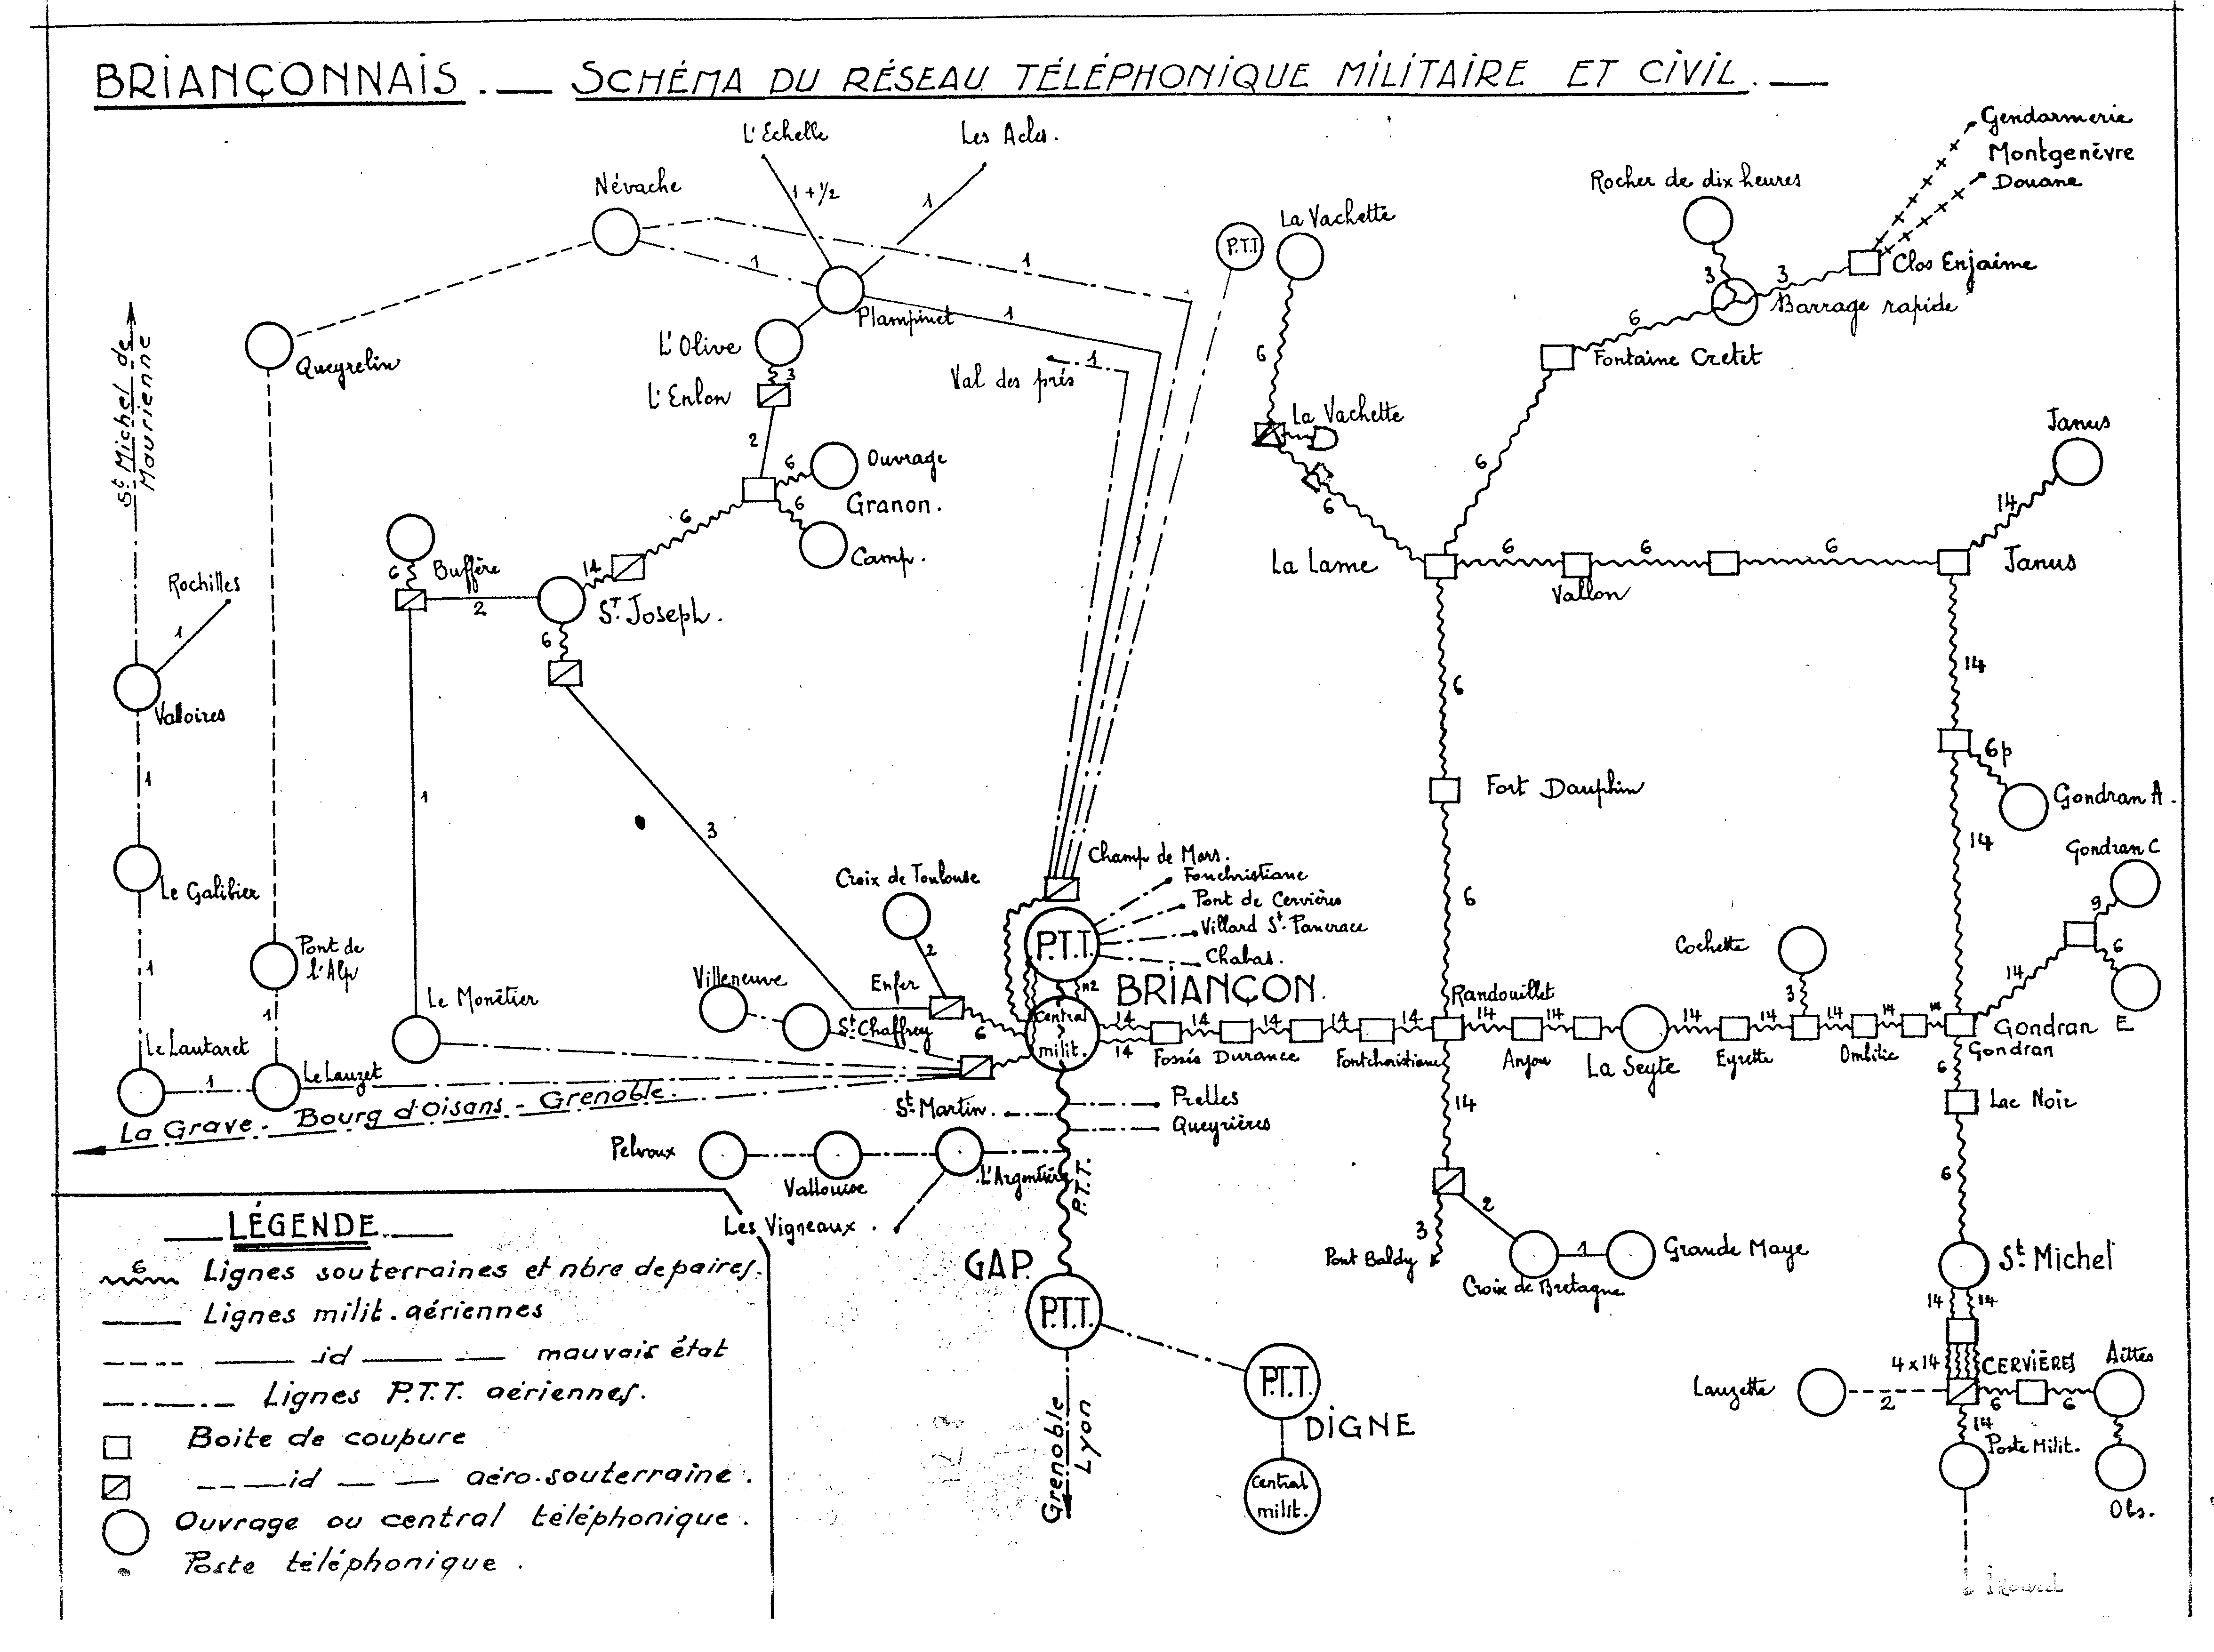 BRIANÇONNAIS. — SCHÉMA DU RÉSEAU TÉLÉPHONIQUE MILITAIRE ET CIVIL. —
Gendarmerie
Montgenèvre
Douane
L'Echelle
Les Acles.
Névache
1+1/2
1
Rocher de dix heures
La Vachette
P.T.T
1
1
Clos Enjaime
3
3
Barrage rapide
Plampinet
1
6
L'Olive
Queyrelin
St Michel de
Maurienne
3
1
Val des prés
6
Fontaine Cretet
L'Enlon
2
La Vachette
Janus
6
Ouvrage
Granon.
6
6
6
14
6
Camp.
Buffère
6
14
La Lame
6
6
6
Janus
Vallon
Rochilles
2
St Joseph.
1
6
14
6
Valloires
6p
1
1
Fort Dauphin
Gondran A.
3
14
Gondran C
Champ de Mars.
Fonchristiane
Pont de Cervières
Villard St. Pancrace
Chabas.
Croix de Toulouse
Le Galibier
6
9
P.T.T.
2
Cochette
6
Pont de
l'Alp
1
14
Villeneuve
Enfer
112
BRIANÇON.
Randouillet
3
Le Monêtier
1
St Chaffrey
6
Central
milit.
14
14
14
14
14
14
14
14
14
14
14
14
14
E
Gondran
Gondran
Fossés
Durance
Fontchristiane
Anjou
La Seyte
Eyrette
Ombilic
Le Lautaret
1
Le Lauzet
6
La Grave - Bourg d'Oisans - Grenoble.
St Martin.
Prelles
Queyrières
14
Lac Noir
Pelvoux
Vallouise
L'Argentière
P.T.T.
6
Les Vigneaux.
2
3
Pont Baldy
1
Grande Maye
Croix de Bretagne
St Michel
GAP.
P.T.T.
14
14
P.T.T.
DIGNE
4x14
CERVIÈRES
Aittes
Lauzette
2
6
6
14
Poste Milit.
Grenoble
Lyon
Central
milit.
Obs.
LÉGENDE
6 Lignes souterraines et nbre de paires.
Lignes milit. aériennes
id mauvais état
Lignes P.T.T. aériennes.
Boite de coupure
id aéro-souterraine.
Ouvrage ou central téléphonique.
Poste téléphonique.